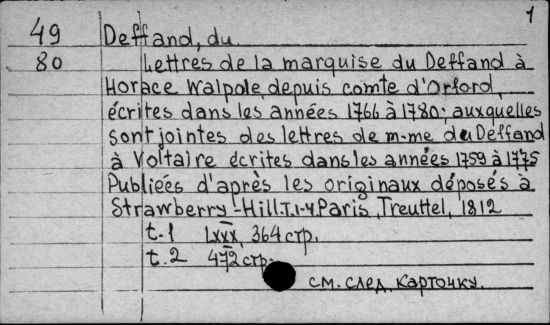 1
49 Deffand, du.
80 Lettres de la marquise du Deffand à
Horace Walpole, depuis comte d'Orford,
écrites dans les années 1766 à 1780; auxquelles
sont jointes des lettres de m-me du Deffand
à Voltaire écrites dans les années 1759 à 1775
Publiées d'après les originaux déposés à
Strawberry-Hill. T.1-4 Paris, Treuttel, 1812
t.1 LXXX, 364 стр.
t.2 472 стр.
см. след. карточку.